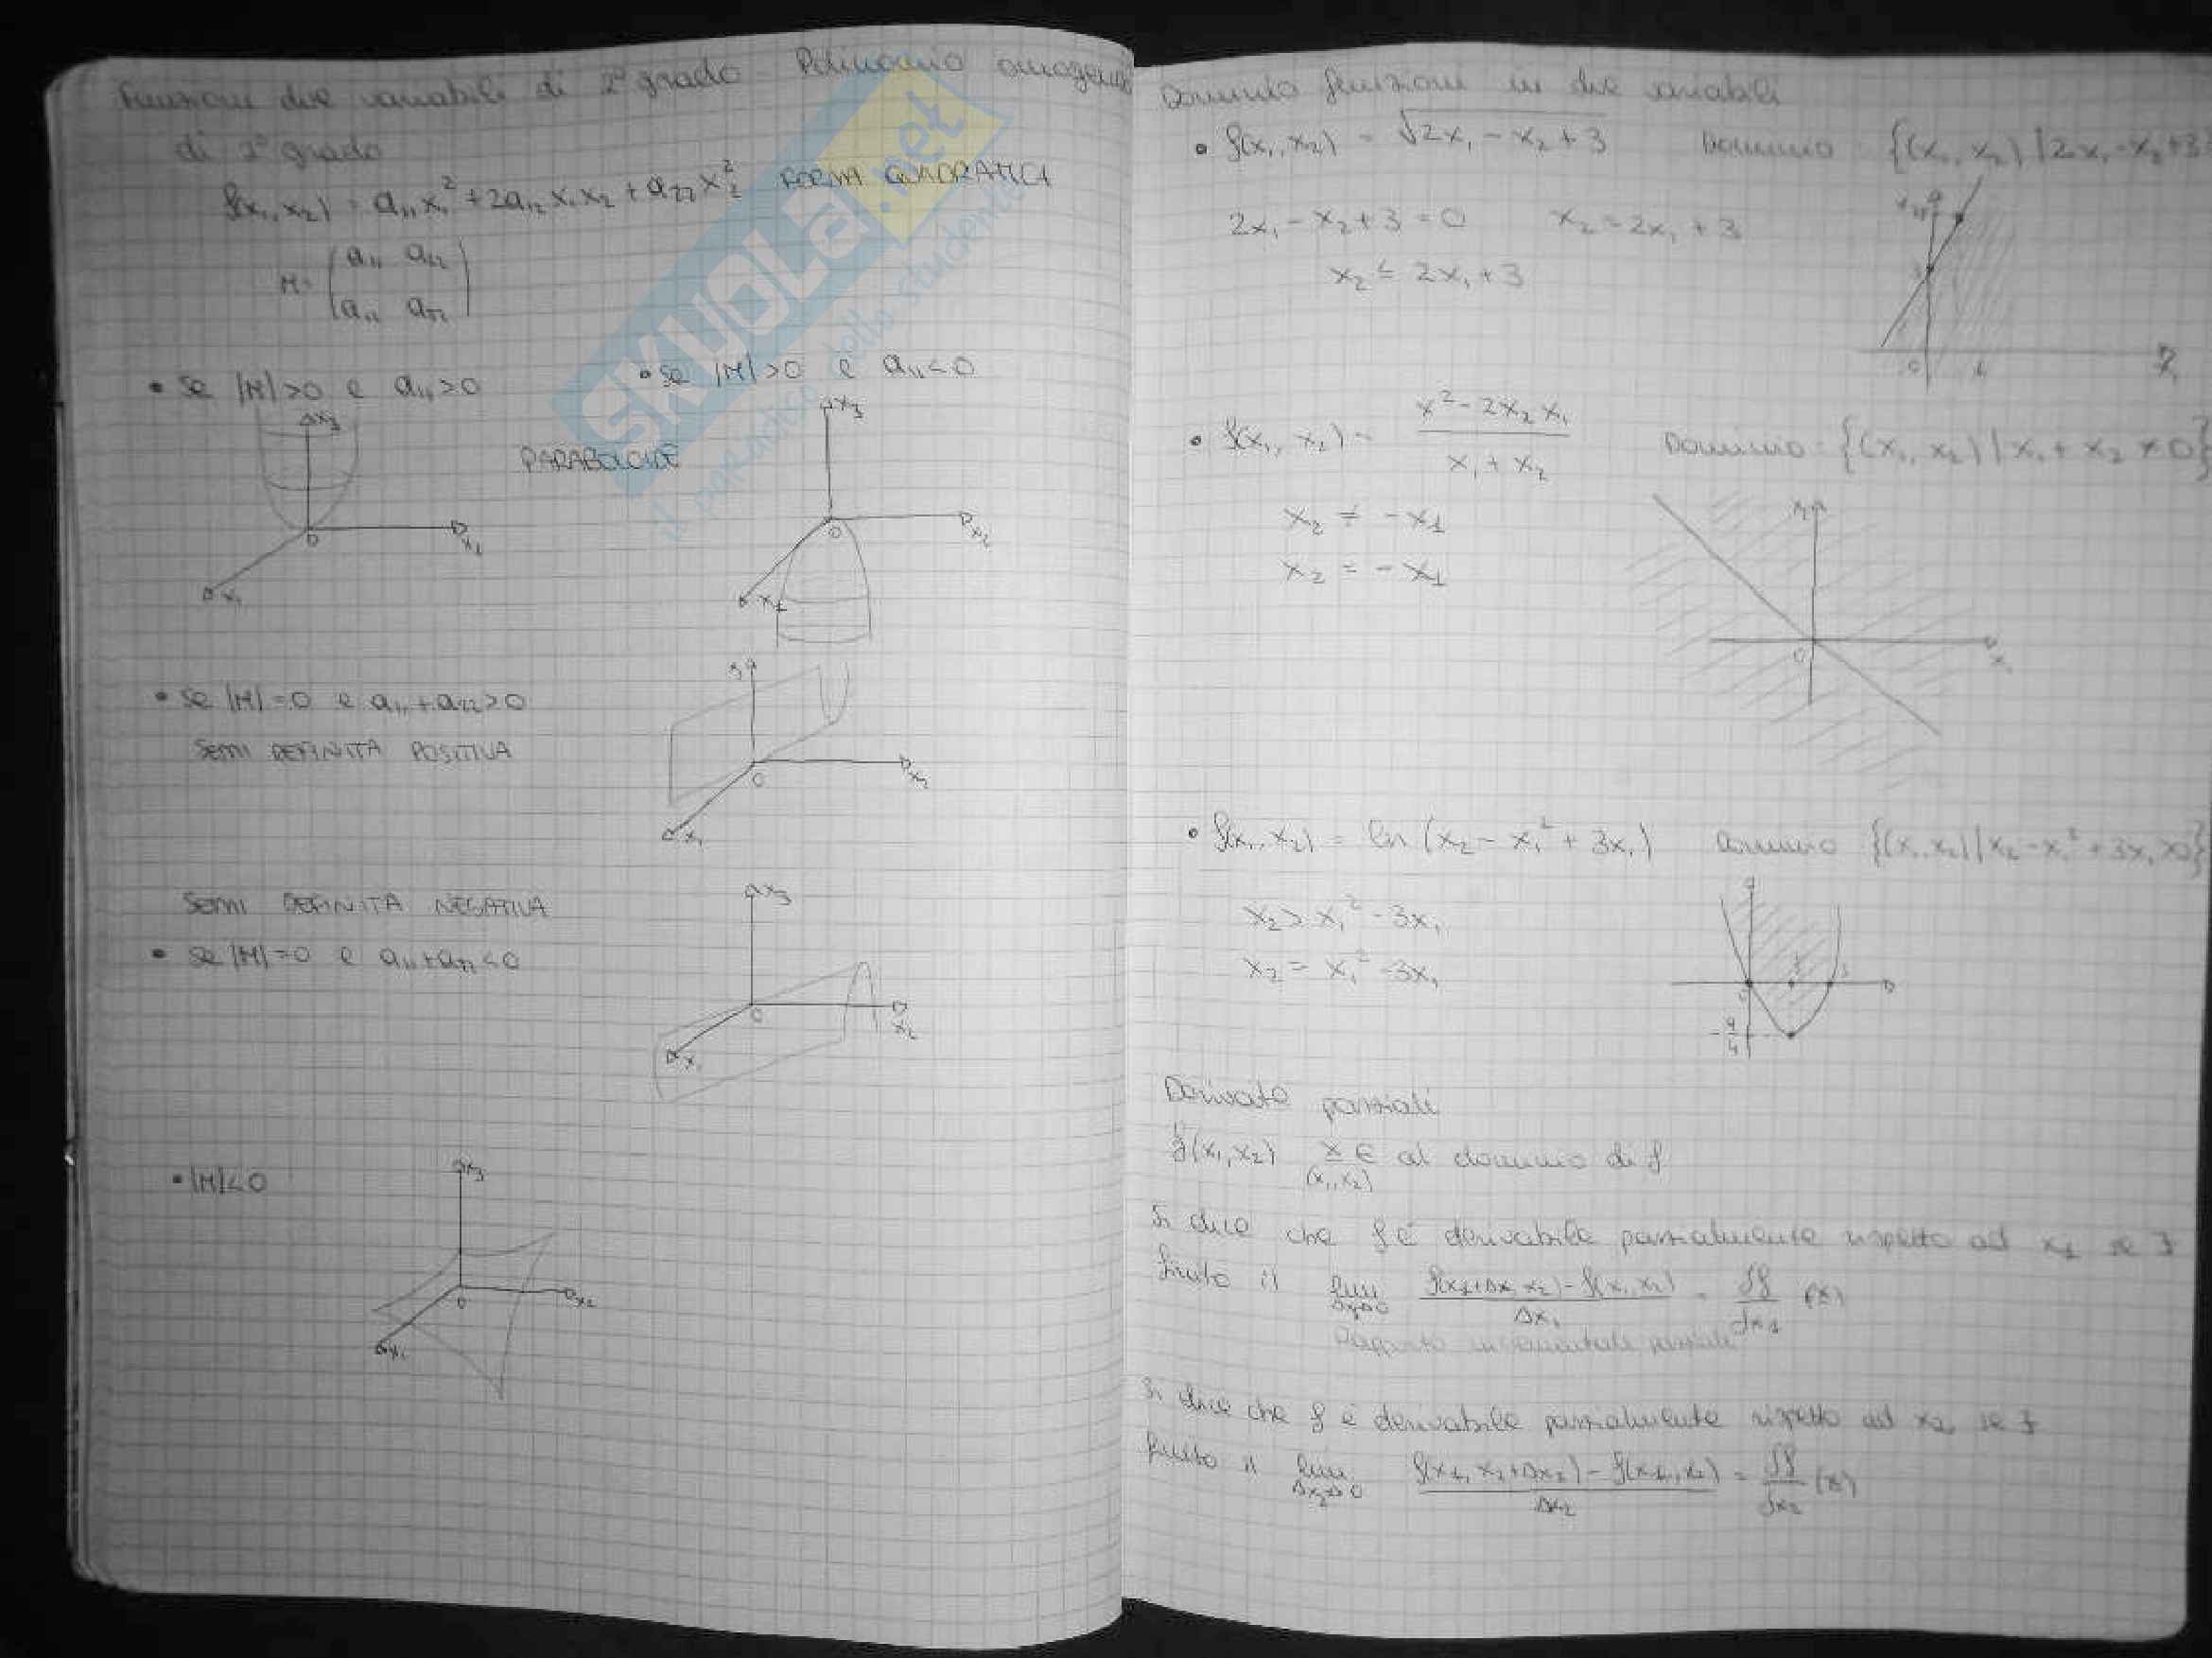 Funzioni due variabili di 2° grado - Polinomio omogeneo
di 2° grado
f(x₁, x₂) = a₁₁x₁² + 2a₁₂x₁x₂ + a₂₂x₂² FORMA QUADRATICA
M = (a₁₁ a₁₂
a₁₂ a₂₂)
• se |M|>0 e a₁₁>0
• se |M|>0 e a₁₁<0
x₃
x₂
x₁
0
PARABOLOIDE
x₃
x₂
x₁
0
• se |M|=0 e a₁₁+a₂₂>0
SEMI DEFINITA POSITIVA
0
x₁
SEMI DEFINITA NEGATIVA
• se |M|=0 e a₁₁+a₂₂<0
x₃
0
x₂
x₁
• |M|<0
x₃
0
x₂
x₁
Dominio funzioni in due variabili
• f(x₁, x₂) = √2x₁ - x₂ + 3 Dominio = {(x₁, x₂) | 2x₁ - x₂ + 3
2x₁ - x₂ + 3 = 0 x₂ = 2x₁ + 3
x₂ ≤ 2x₁ + 3
• f(x₁, x₂) = x² - 2x₂x₁ / x₁ + x₂ Dominio = {(x₁, x₂) | x₁ + x₂ ≠ 0}
x₂ ≠ -x₁
x₂ = -x₁
0
• f(x₁, x₂) = ln (x₂ - x₁² + 3x₁) Dominio {(x₁, x₂) | x₂ - x₁² + 3x₁ > 0}
x₂ > x₁² - 3x₁
x₂ = x₁² - 3x₁
-9/4
Derivate parziali
f(x₁, x₂) x ∈ al dominio di f
(x₁, x₂)
Si dice che f è derivabile parzialmente rispetto ad x₁ se ∃
finito il lim Δx₁→0 f(x₁+Δx₁, x₂) - f(x₁, x₂) / Δx₁ = ∂f/∂x₁ (x)
Rapporto incrementale parziale
Si dice che f è derivabile parzialmente rispetto ad x₂ se ∃
finito il lim Δx₂→0 f(x₁, x₂+Δx₂) - f(x₁, x₂) / Δx₂ = ∂f/∂x₂ (x)
SKUOLA.net
il paradiso dello studente